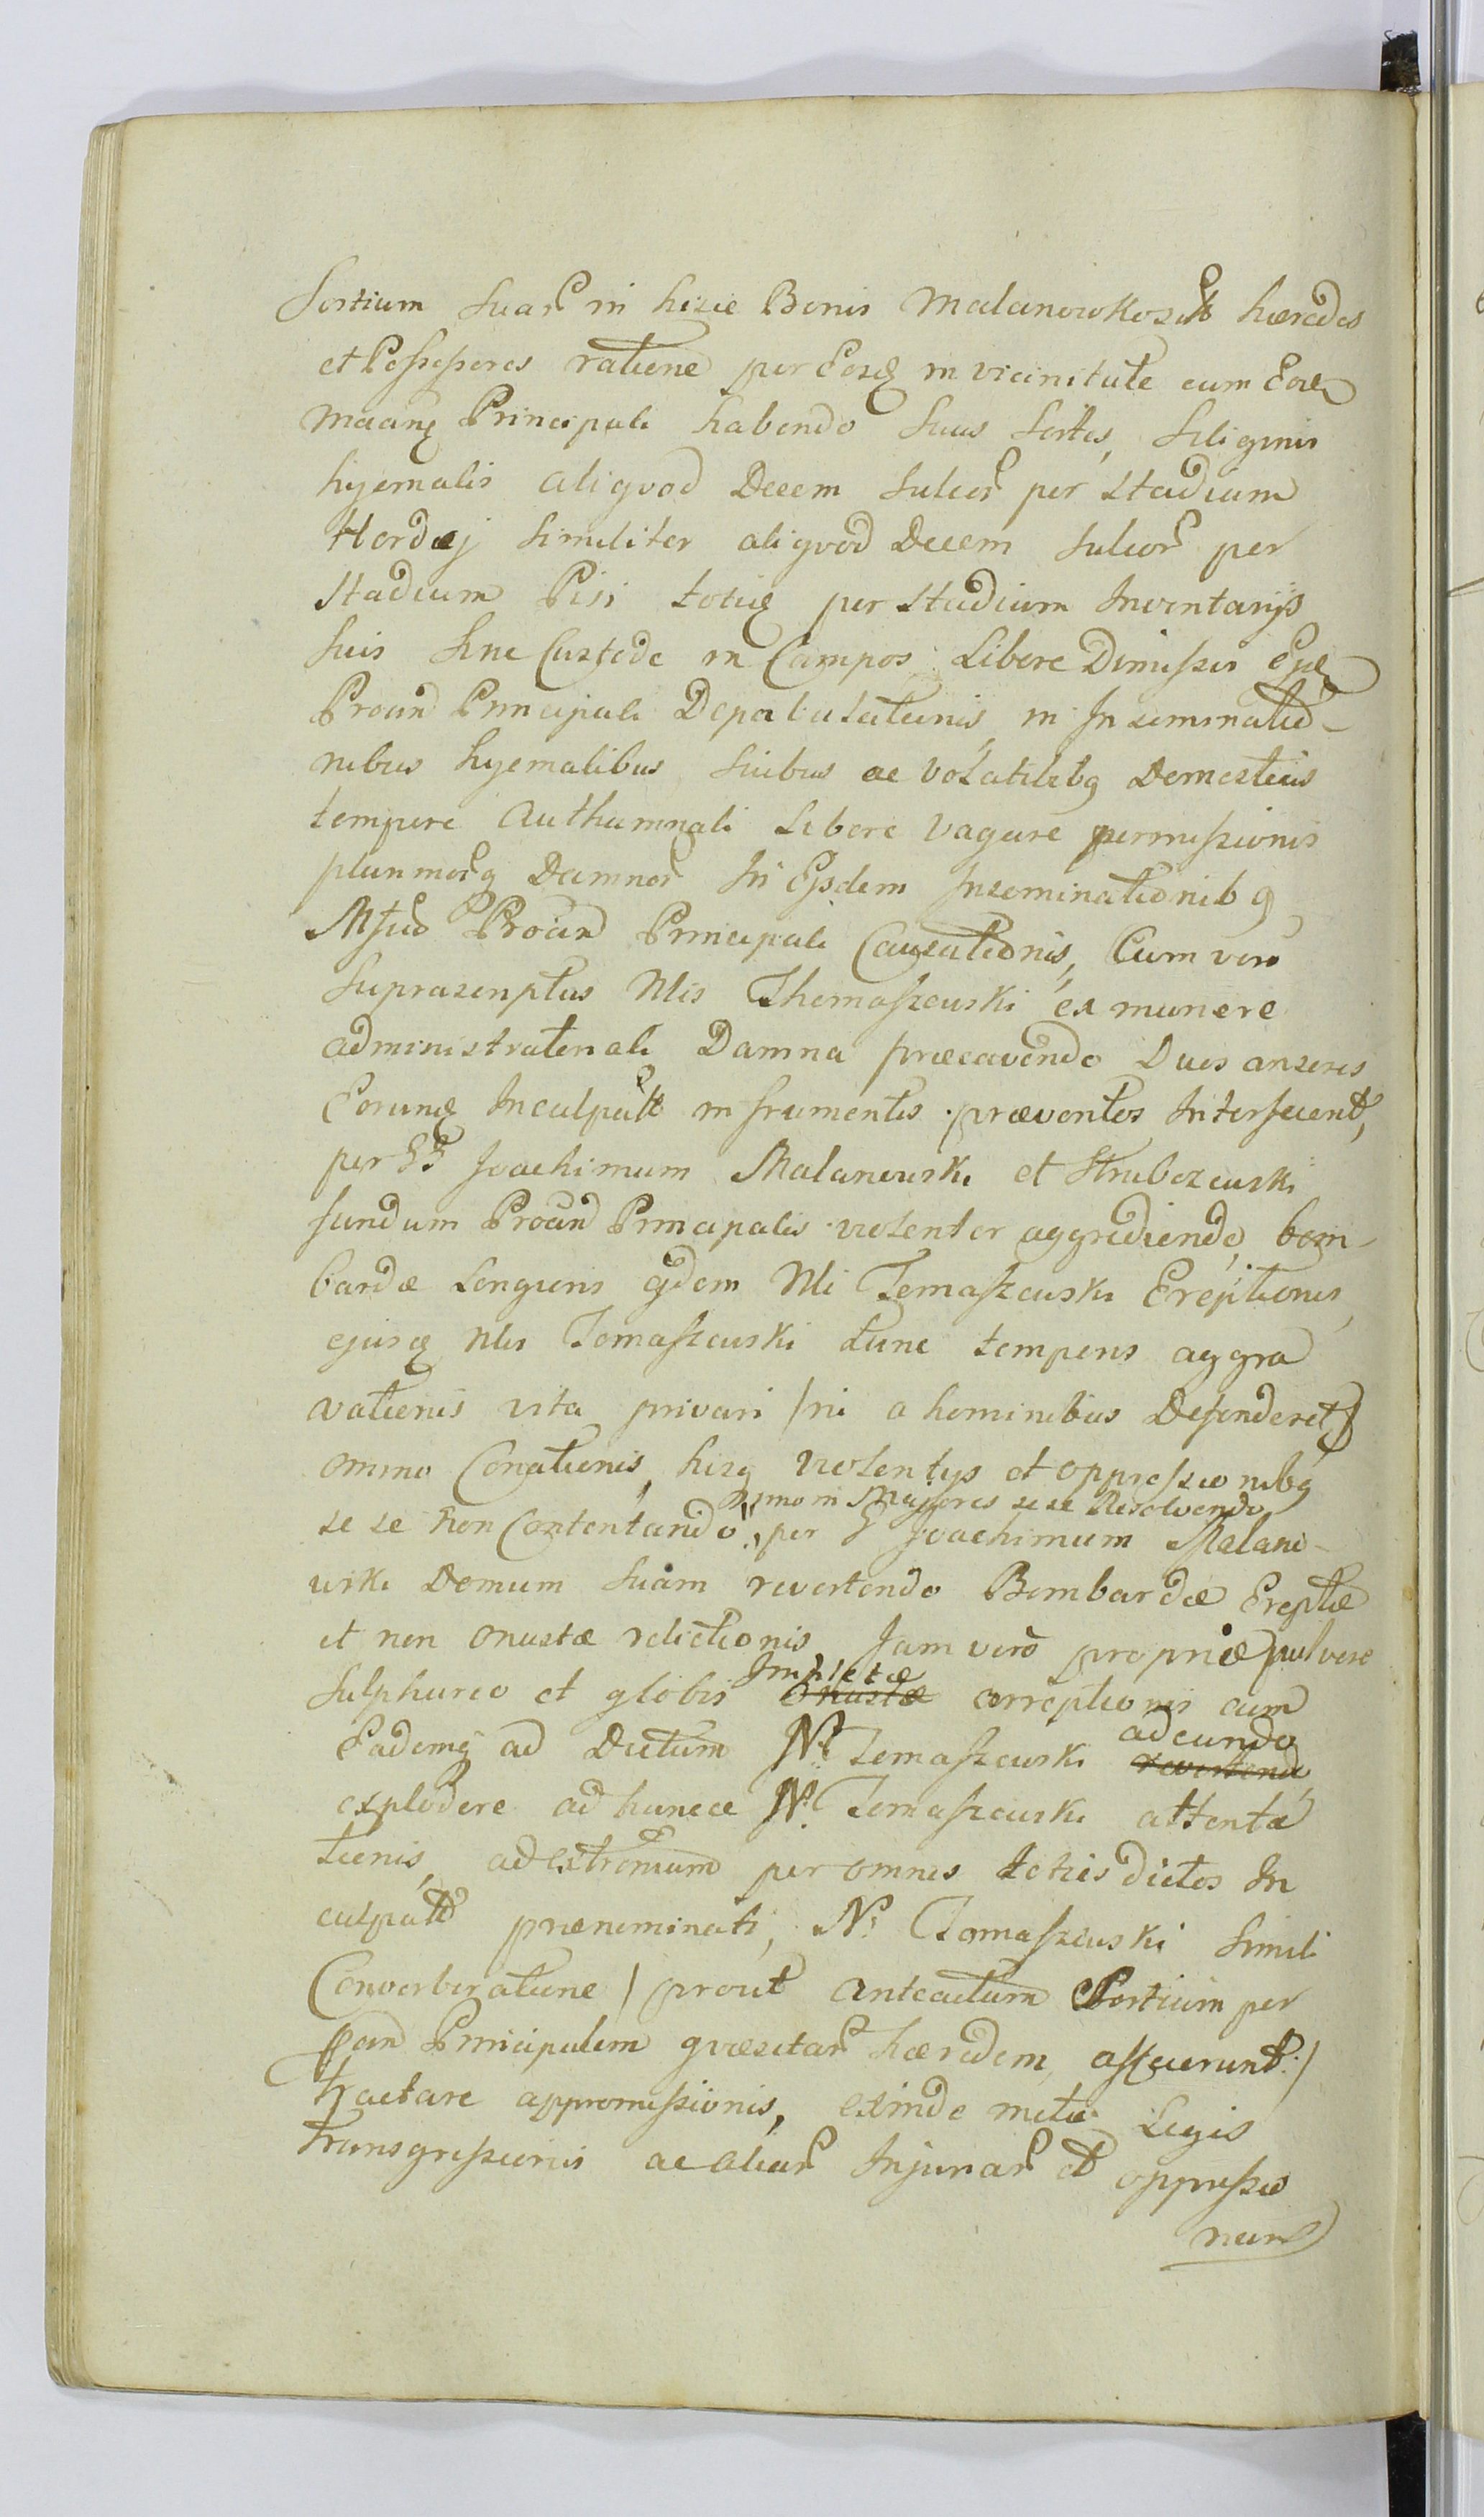 Sortium suar in hisce Bonis Malanowkoszt hæredes
et Possessores ratione per Eosq in vicinitate cum
Principali habendo suas sortes, siliginis
hyemalis aliqvod Decem sulcor per stadium
Hordæj similiter aliqvod Decem sulcor per
stadium Pisi totiq per stadium Inventarijs
suis sine Custode in Campos Libere Dimissis
Principali Depabulationis, in Inseminatio-
nibus hyemalibus suibus ac volatilibq Domesticis
tempore Authumnali Libere vagare permissionis
plurimorq Damnor In Ejsdem Inseminationibq
Principali Causationis, Cum vero
suprascriptus Nlis Thomaszewski ex munere
administratoriali Damna præcavendo Duos anseres
Eorunq Inculpatt in frumentis præventos Interfecerit,
per GG Joachimum Malanowski et Strubczewski
fundum Principalis violenter aggrediendo, bom-
bardæ Longioris ejdem Nli Tomaszewski Ereptionis,
ejusq Nlis Tomaszewski tunc temporis aggra
vationis vita privari /ni a hominibus Defenderet/
omino Conationis, hisq violentijs et oppressionibq
imo in Majores sese Resolvendo
se se non Contentando, per G Joachimum Malano-
wski Domum suam revertendo Bombardæ Ereptæ
et non onustæ relictionis, Jam vero propriæ pulvere
Impletæ
sulphureo et globis onustæ arreptionis cum
adeundo
Eademq ad Dictum N. Tomaszewski revertend
explodere ad huncce N. Tomaszewski attenta
tionis, ad extremum per omnes toties dictos In
culpatt prænominati, N. Tomaszewski simili
Converberatione / prout anteactum Sortium per
Principalem qvæsitar hæredem, affecerunt:/
tractare appromissionis, exinde metu Legis
transgressionis ac aliar Injuriar et oppressio
num